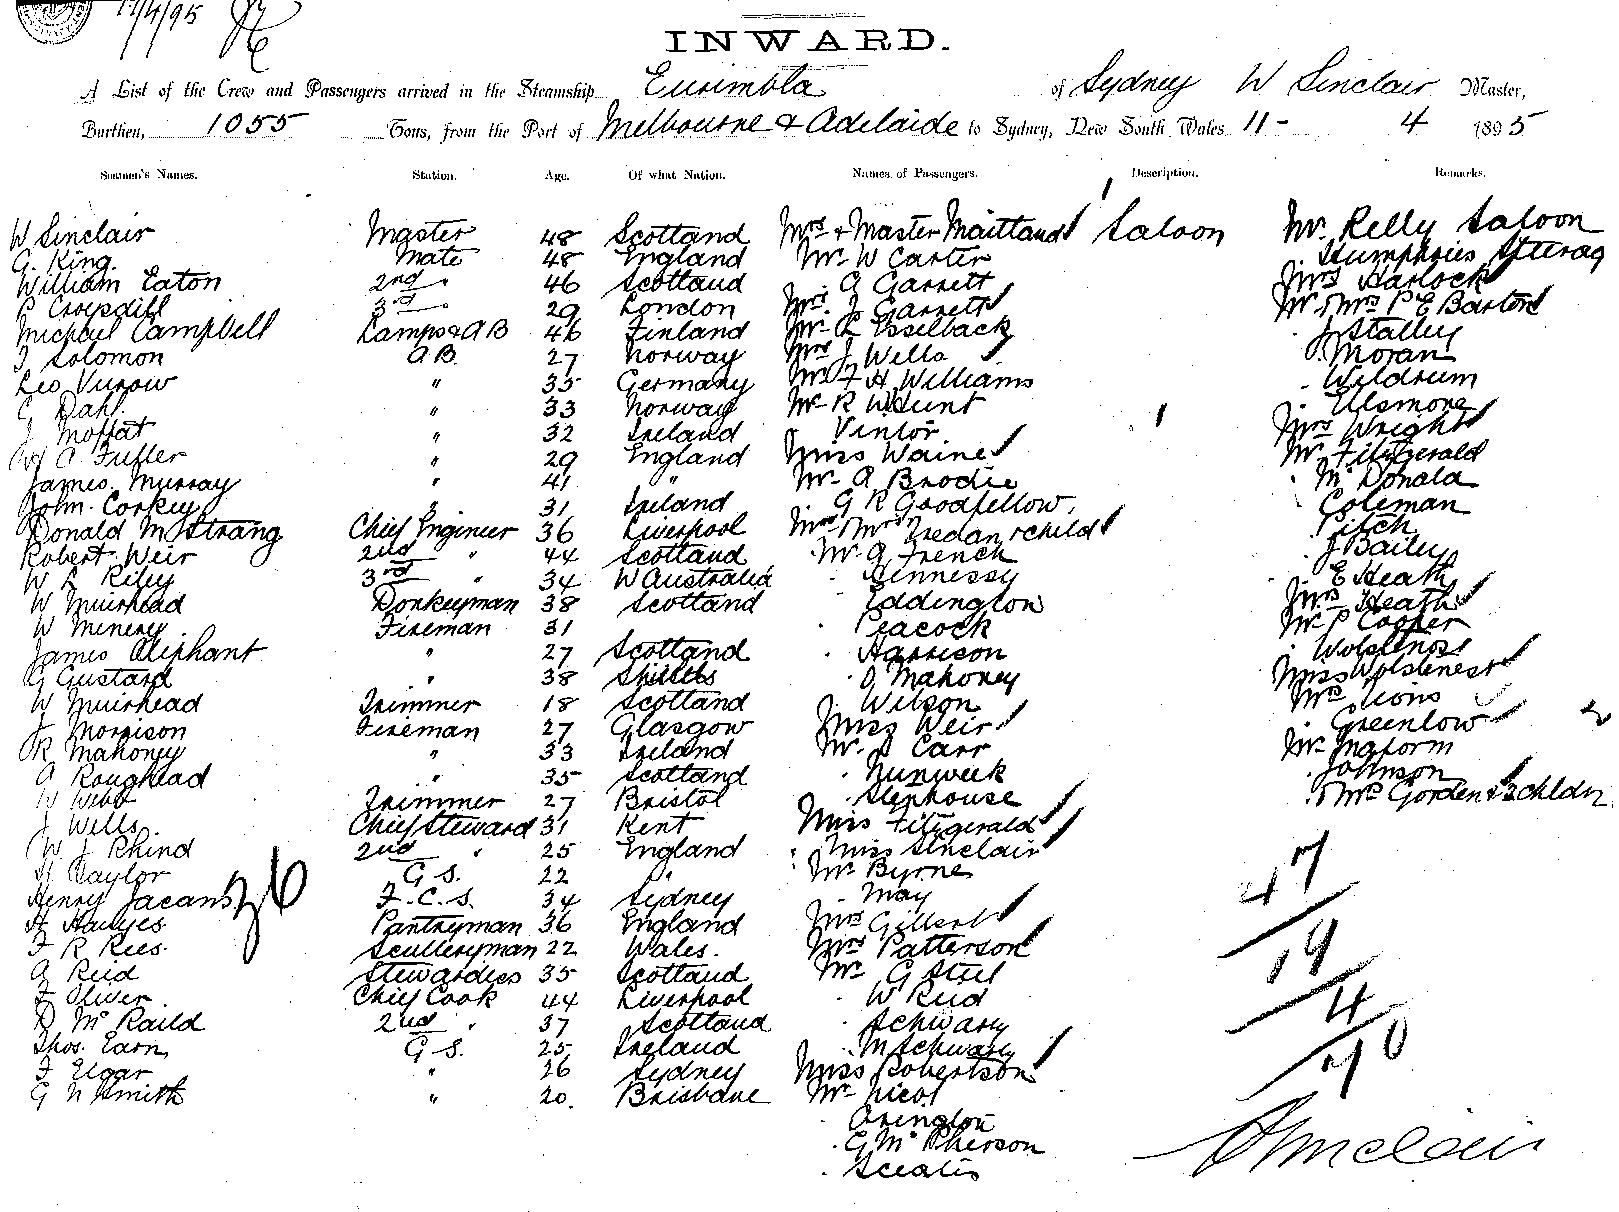 11/4/95
INWARD.
A List of the Crew and Passengers arrived in the Steamship Eurimbla of Sydney W Sinclair Master,
Burthen, 1055 Tons, from the Port of Melbourne & Adelaide to Sydney, New South Wales 11 - 4 1895
Seamen's Names. Station. Age. Of what Nation. Names of Passengers. Description. Remarks.
W Sinclair Master 48 Scotland Mrs & Master Maitland Saloon Mr. Kelly Saloon
G. King Mate 48 England Mr W Carter Humphries Steerag
William Eaton 2nd " 46 Scotland G Garrett Mrs Harlock
P Cropdill 3rd " 29 London Mrs. J Garrett Mr & Mrs P E Barton
Michael Campbell Lamps & AB 46 Finland Mr L Esselback J Stalley
J Solomon AB 27 Norway Mrs J Wells Moran
Leo Vurow " 35 Germany Mr F H Williams Wildrum
C Dahl " 33 Norway Mr R W Hunt Elsmore
J Moffat " 32 Ireland " Vintor Mrs Wright
C Fuller " 29 England Miss Waine Mr Fitzgerald
James Murray " 41 " Mr A Brodie McDonald
John Corkey " 31 Ireland G R Goodfellow Coleman
Donald McStrang Chief Engineer 36 Liverpool Mr & Mrs Tredan & child Pitch
Robert Weir 2nd " 44 Scotland Mr A French J Bailey
W L Riley 3rd " 34 W Australia Hennessy E Heath
W Muirhead Donkeyman 38 Scotland Eddington Mrs Heath
W Menery Fireman 31 Peacock Mr P Cooper
James Oliphant " 27 Scotland Harrison
G Gustard " 38 Shields O Mahoney Miss
W Muirhead Trimmer 18 Scotland Wilson Lions
J Morrison Fireman 27 Glasgow Miss Weir Greenlow
R Mahoney " 33 Ireland Mr. S Carr Mr
A Roughead " 35 Scotland Nunweek Johnson
W Webb Trimmer 27 Bristol Stenhouse & Mrs Gorden & 3 chldn
J Wells Chief Steward 31 Kent Miss Fitzgerald
W J Rhind 2nd " 25 England " Miss Sinclair
H Taylor G. S. 22 " Mr Byrne
Henry Jacans F. C. S. 34 Sydney May
H Hawyes Pantryman 36 England Mrs Gilbert
F R Rees Sculleryman 22 Wales. Mrs Patterson
A Reid Stewardess 35 Scotland Mr G Steel
F Oliver Chief Cook 44 Liverpool W Reid
D McRaild 2nd " 37 Scotland Schwary
Thos. Earn G S. 25 Ireland M Schwary
F Elgar " 26 Sydney Miss Robertson
G N Smith " 20 Brisbane Mr Nicol
Arington
G McPherson
Scealis
36
47
19
4
70
W Sinclair